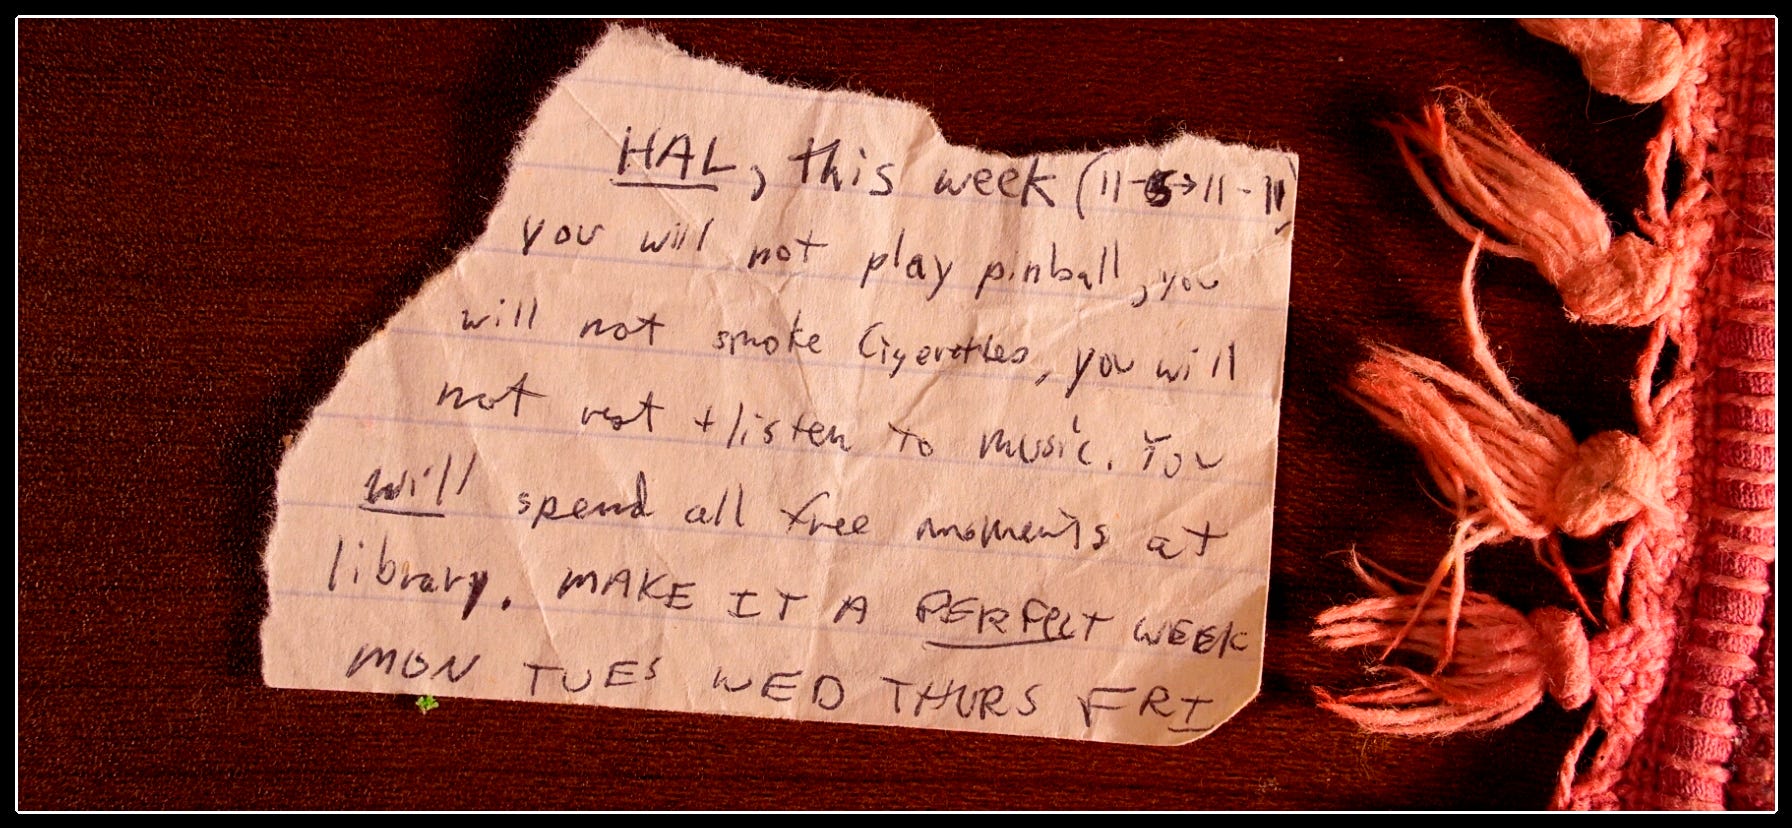 HAL, this week (11-5→11-11)
you will not play pinball, you
will not smoke Cigerettes, you will
not rest + listen to music. You
will spend all free moments at
library. MAKE IT A PERFECT WEEK
MON TUES WED THURS FRI